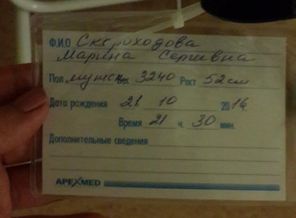 Ф.И.О Скороходова
Марина Сергеевна
Пол мужск. Вес 3240 Рост 52см
Дата рождения 21 10 2016
Время 21 ч. 30 мин.
Дополнительные сведения
APEXMED